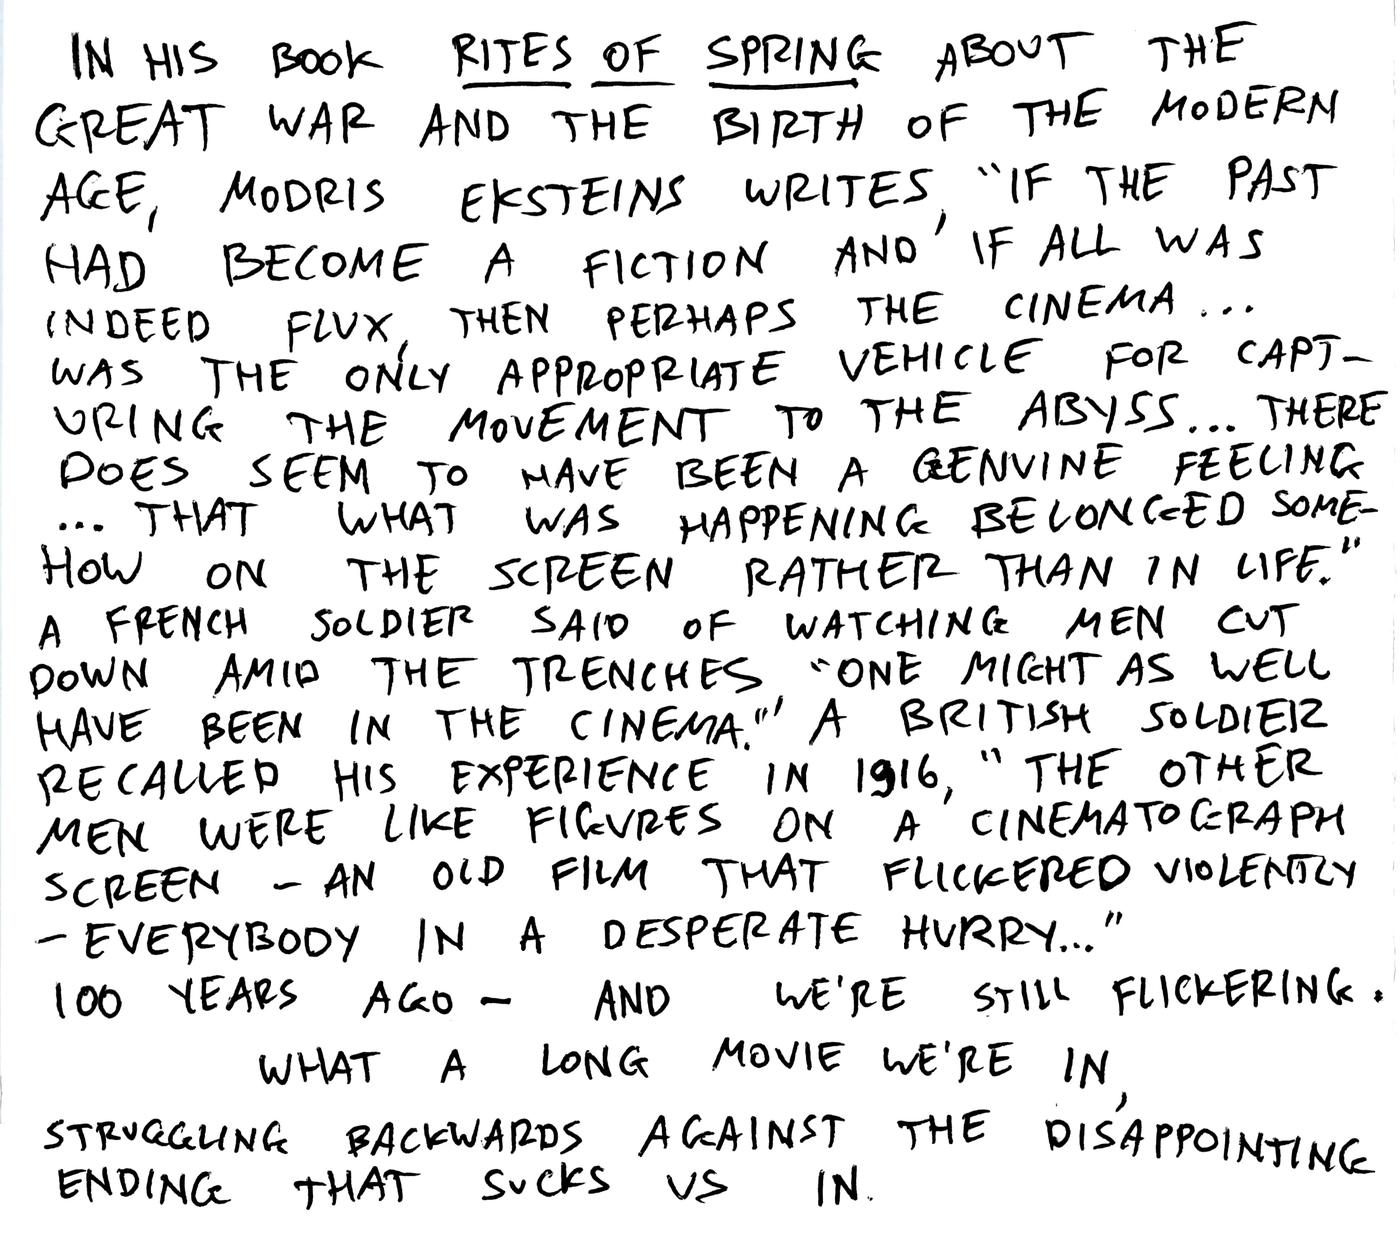 IN HIS BOOK RITES OF SPRING ABOUT THE
GREAT WAR AND THE BIRTH OF THE MODERN
AGE, MODRIS EKSTEINS WRITES, "IF THE PAST
HAD BECOME A FICTION AND IF ALL WAS
INDEED FLUX, THEN PERHAPS THE CINEMA...
WAS THE ONLY APPROPRIATE VEHICLE FOR CAPT-
URING THE MOVEMENT TO THE ABYSS... THERE
DOES SEEM TO HAVE BEEN A GENUINE FEELING
... THAT WHAT WAS HAPPENING BELONGED SOME-
HOW ON THE SCREEN RATHER THAN IN LIFE."
A FRENCH SOLDIER SAID OF WATCHING MEN CUT
DOWN AMID THE TRENCHES, "ONE MIGHT AS WELL
HAVE BEEN IN THE CINEMA." A BRITISH SOLDIER
RECALLED HIS EXPERIENCE IN 1916, "THE OTHER
MEN WERE LIKE FIGURES ON A CINEMATOGRAPH
SCREEN – AN OLD FILM THAT FLICKERED VIOLENTLY
– EVERYBODY IN A DESPERATE HURRY..."
100 YEARS AGO – AND WE'RE STILL FLICKERING.
WHAT A LONG MOVIE WE'RE IN,
STRUGGLING BACKWARDS AGAINST THE DISAPPOINTING
ENDING THAT SUCKS US IN.